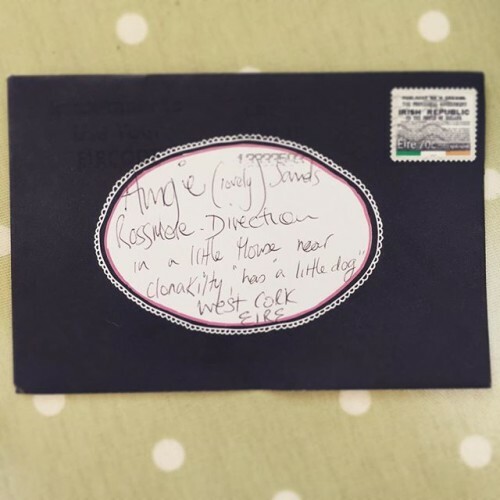 Angie (lovely) Sands
Rossmore - Direction
in a little House near
Clonakilty, "has a little dog"
West CORK
EIRE
IRISH REPUBLIC
Éire 70c